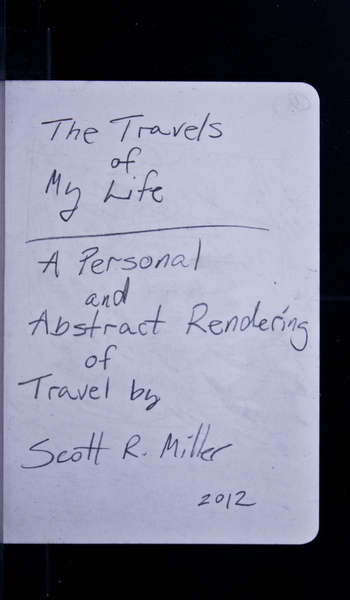 The Travels
of
My Life
A Personal
and
Abstract Rendering
of
Travel by
Scott R. Miller
2012